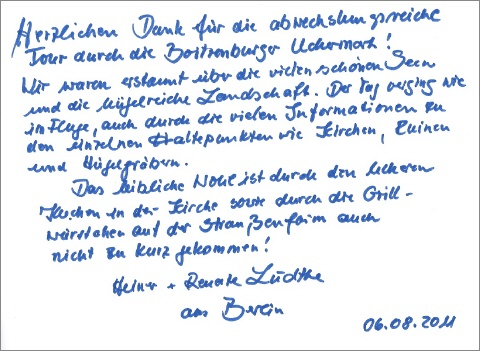 Herzlichen Dank für die abwechslungsreiche
Tour durch die Boitzenburger Uckermark!
Wir waren erstaunt über die vielen schönen Seen
und die hügelreiche Landschaft. Der Tag verging wie
im Fluge, auch durch die vielen Informationen zu
den einzelnen Haltepunkten wie Kirchen, Ruinen
und Hügelgräbern.
Das leibliche Wohl ist durch den leckeren
Kuchen in der Kirche sowie durch die Grill-
würstchen auf der Straußenfarm auch
nicht zu kurz gekommen!
Heiner + Renate Lüdtke
aus Berlin
06.08.2011